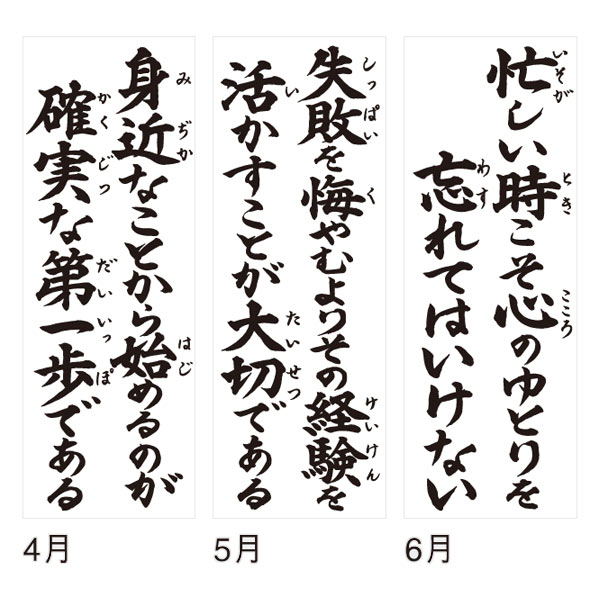 身近なことから始めるのが
確実な第一歩である
4月
失敗を悔やむよりその経験を
活かすことが大切である
5月
忙しい時こそ心のゆとりを
忘れてはいけない
6月